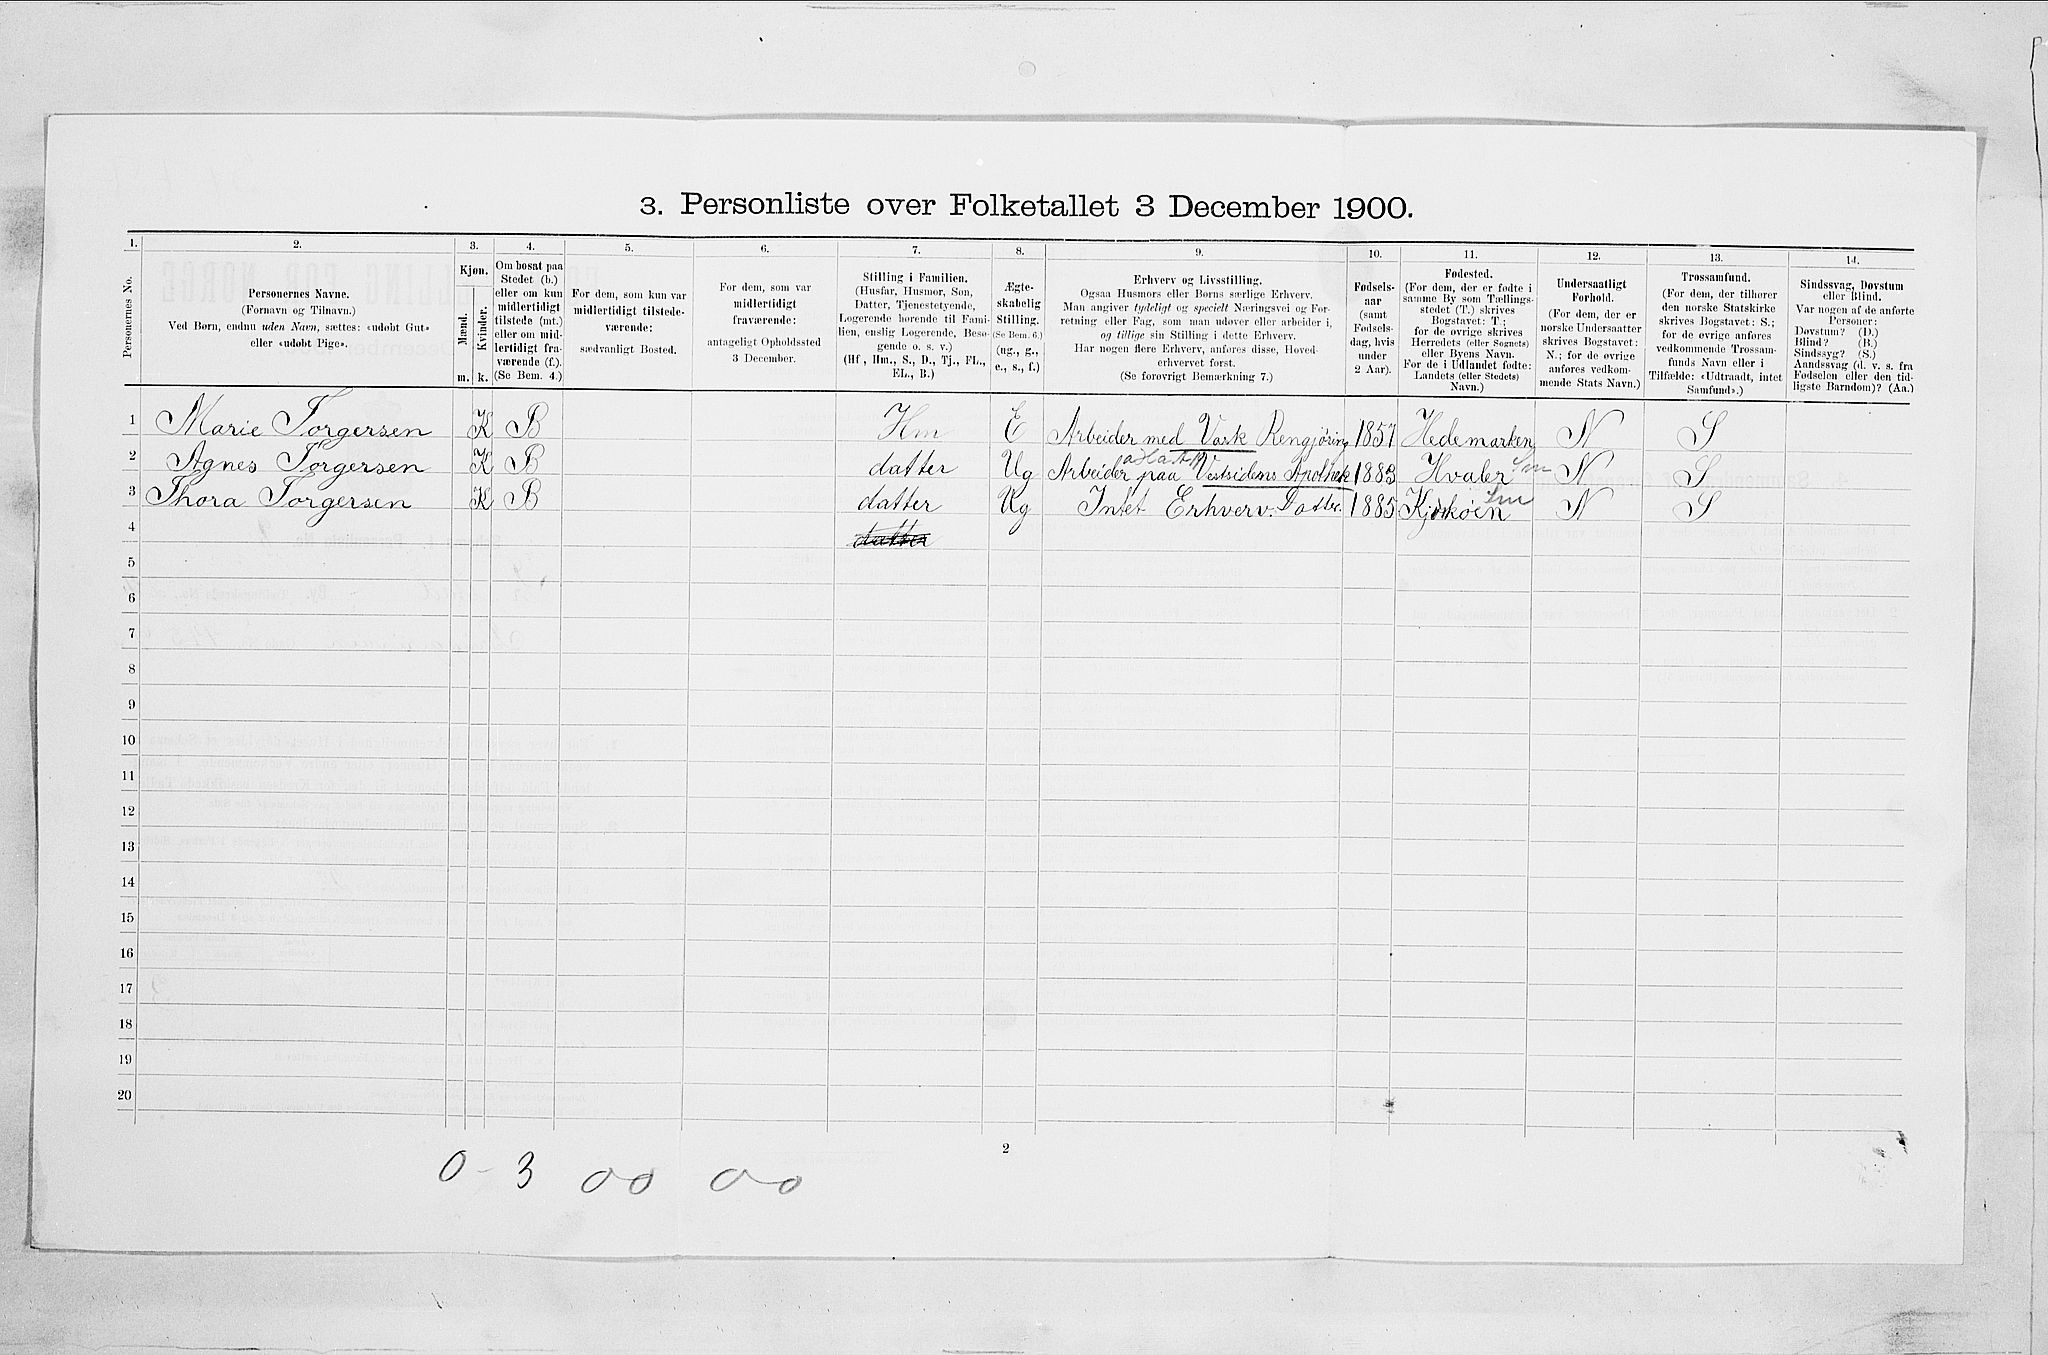 3. Personliste over Folketallet 3 December 1900.
1. 2. 3. 4. 5. 6. 7. 8. 9. 10. 11. 12. 13. 14.
Personernes No.
Personernes Navne.
(Fornavn og Tilnavn.)
Ved Børn, endnu uden Navn, sættes: «udøbt Gut»
eller «udøbt Pige».
Kjøn.
Mænd.
Kvinder.
m. k.
Om bosat paa
Stedet (b.)
eller om kun
midlertidigt
tilstede (mt.)
eller om mid-
lertidigt fra-
værende (f.).
(Se Bem. 4.)
For dem, som kun var
midlertidigt tilstede-
værende:
sædvanligt Bosted.
For dem, som var
midlertidigt
fraværende:
antageligt Opholdssted
3 December.
Stilling i Familien.
(Husfar, Husmor, Søn,
Datter, Tjenestetyende,
Logerende hørende til Fami-
lien, enslig Logerende, Besø-
gende o. s. v.)
(Hf, Hm., S., D., Tj., FL.,
EL., B.)
Ægte-
skabelig
Stilling.
(Se Bem. 6.)
(ug., g.,
e., s., f.)
Erhverv og Livsstilling.
Ogsaa Husmors eller Børns særlige Erhverv.
Man angiver tydeligt og specielt Næringsvei og For-
retning eller Fag, som man udøver eller arbeider i,
og tillige sin Stilling i dette Erhverv.
Har nogen flere Erhverv, anføres disse, Hoved-
erhvervet først.
(Se forøvrigt Bemærkning 7.)
Fødsels-
aar
(samt
Fødsels-
dag, hvis
under
2 Aar).
Fødested.
(For dem, der er fødte i
samme By som Tællings-
stedet (T.) skrives
Bogstavet: T.;
for de øvrige skrives
Herredets (eller Sognets)
eller Byens Navn.
For de i Udlandet fødte:
Landets (eller Stedets)
Navn.)
Undersaatligt
Forhold.
(For dem, der er
norske Undersaatter
skrives Bogstavet:
N.; for de øvrige
anføres vedkom-
mende Stats Navn.)
Trossamfund.
(For dem, der tilhører
den norske Statskirke
skrives Bogstavet: S.;
for de øvrige anføres
vedkommende Trossam-
funds Navn eller i
Tilfælde: «Udtraadt, intet
Samfund».)
Sindssvag, Døvstum
eller Blind.
Var nogen af de anførte
Personer:
Døvstum? (D.)
Blind? (B.)
Sindssyg? (S.)
Aandssvag (d. v. s. fra
Fødselen eller den tid-
ligste Barndom)? (Aa.)
1 Marie Torgersen K B Hm E Arbeider med Vask Rengjøring 1857 Hedemarken N S
2 Agnes Torgersen K B datter Ug Arbeider paa Vestsidens Apothek 1883 Hvaler Sm N S
3 Thora Torgersen K B datter Ug Intet Erhverv. Datter. 1885 Kjøkøen Sm N S
4 datter
5
6
7
8
9
10
11
12
13
14
15
16
17
18
19
20
2
0-3 00 00